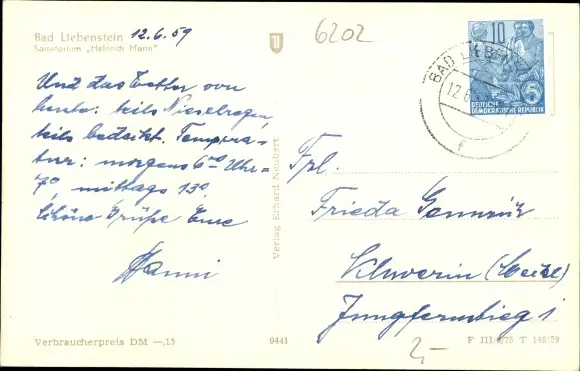 Bad Liebenstein 12.6.59
Sanatorium „Heinrich Mann"
6202
10
DEUTSCHE
DEMOKRATISCHE REPUBLIK
5
BAD LIEBEN
12.6
F
Und das Wetter von
heute: teils Nieselregen,
teils bedeckt. Tempera-
tur: morgens 6⁰⁰ Uhr =
7°, mittags 13°
Schöne Grüße Eure
Hanni
Verlag Erhard Neubert
Frl.
Frieda
Schwerin (Meckl)
Jungfernstieg 1
Verbraucherpreis DM —,15
9441
2,-
F III/8/75 T 149/59